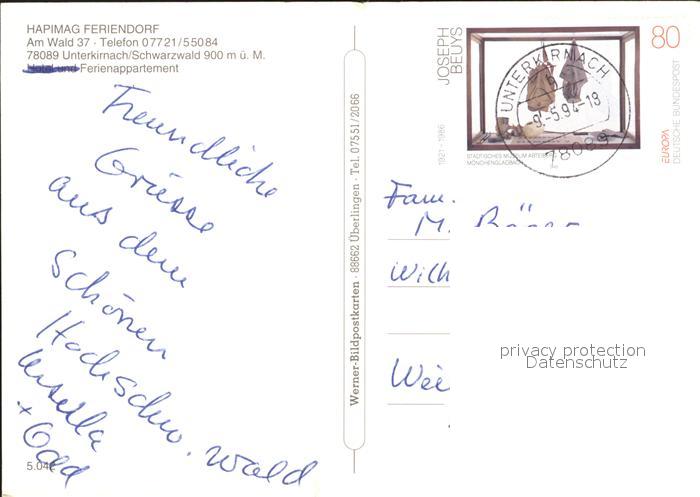 HAPIMAG FERIENDORF
Am Wald 37 · Telefon 07721/55084
78089 Unterkirnach/Schwarzwald 900 m ü. M.
Hotel und Ferienappartement
Freundliche
Grüsse
aus dem
schönen
Hochschw. Wald
Ursella
+
5.042
Werner-Bildpostkarten · 88662 Überlingen · Tel. 07551/2066
JOSEPH
BEUYS
1921 - 1986
80
EUROPA
DEUTSCHE BUNDESPOST
STÄDTISCHES MUSEUM ABTEIBERG
MÖNCHENGLADBACH
UNTERKIRNACH
-9.-5.94-18
78089
Fam.
M.
Wilh
Wei
privacy protection
Datenschutz